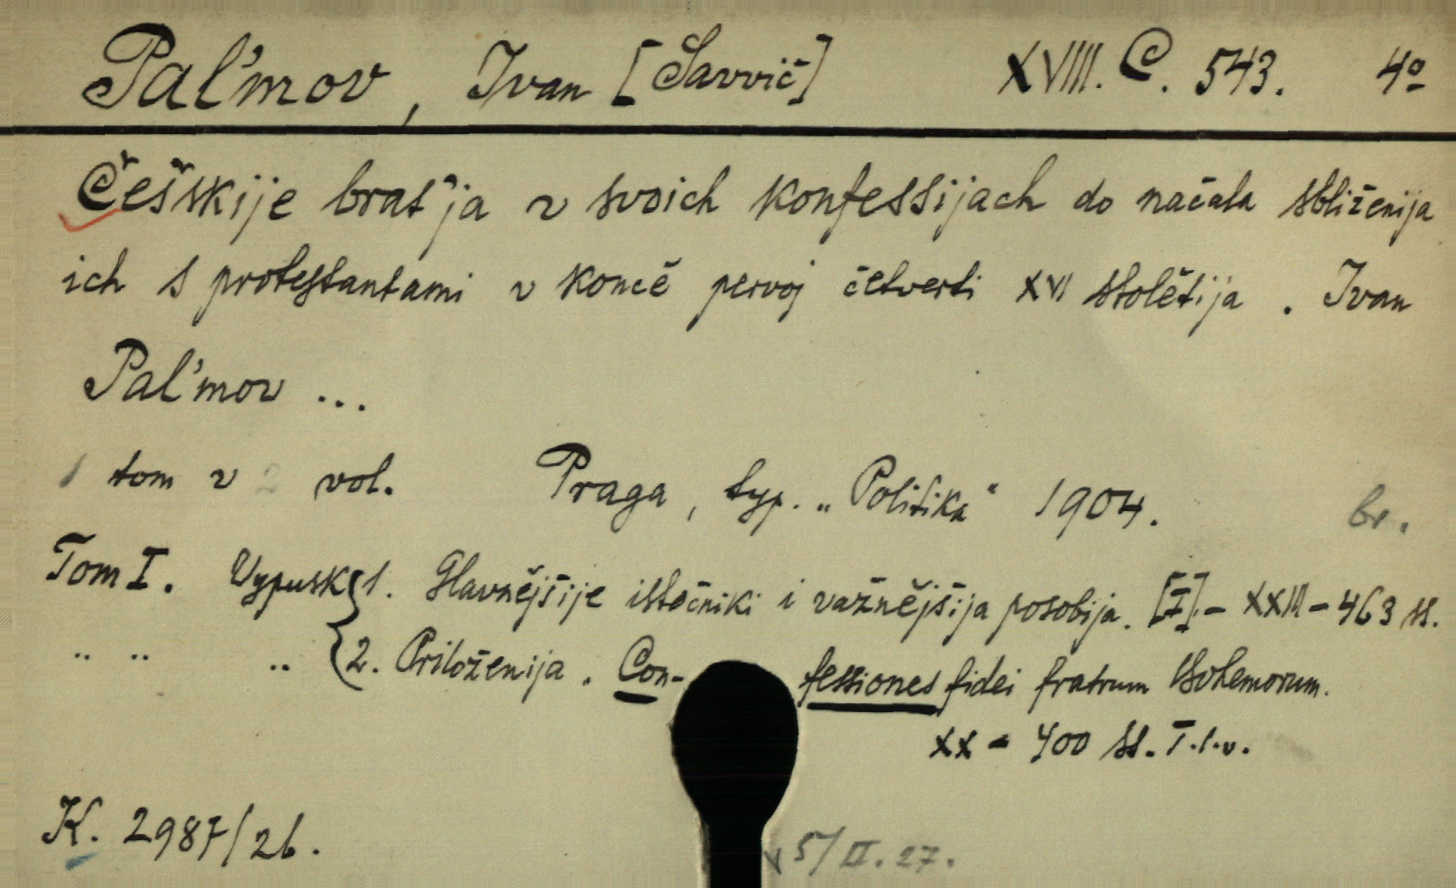 Pal'mov, Ivan [Savvič] XVIII. C. 543. 4º
Češskije brat'ja v svoich konfessijach do načala sbliženija
ich s protestantami v koncě pervoj četverti XVI stolětija. Ivan
Pal'mov ...
1 tom v 2 vol. Praga, typ. „Politika" 1904. br.
Tom I. Vypusk { 1. Glavnějšije istočniki i važnějšija posobija. [I] - XXIII - 463 ss.
" " " { 2. Priloženija. Confessiones fidei fratrum Bohemorum.
XX - 400 ss. T.s.v.
K. 2987/26. 5/II.27.